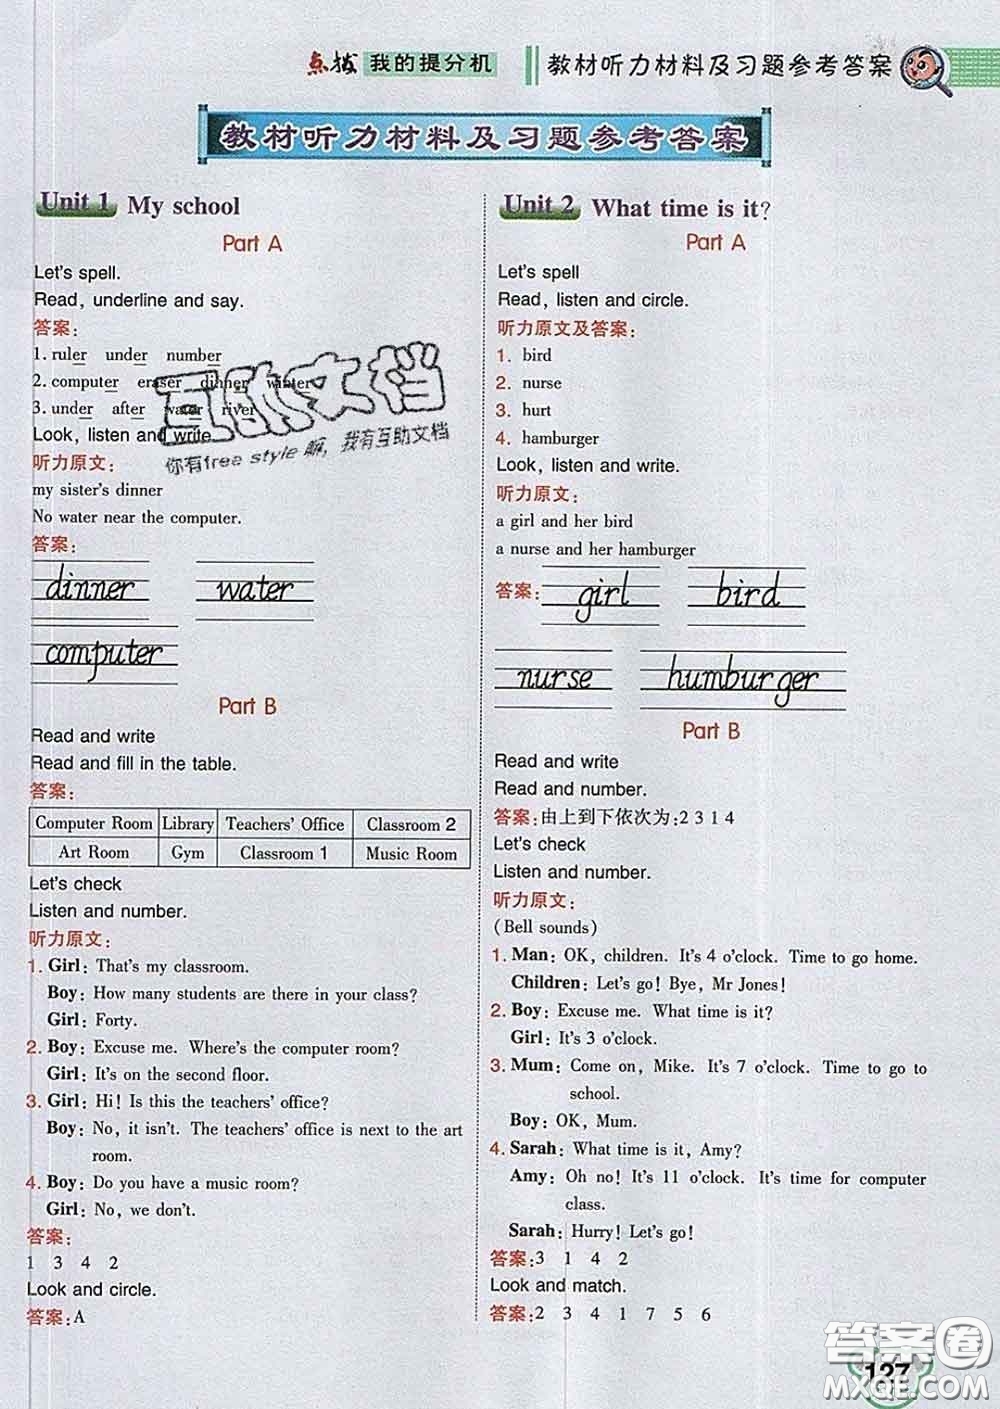 点拨 我的提分机 教材听力材料及习题参考答案
教材听力材料及习题参考答案
Unit 1 My school
Part A
Let's spell.
Read, underline and say.
答案:
1. ruler under number
2. computer eraser dinner winter
3. under after water river
Look, listen and write.
听力原文:
my sister's dinner
No water near the computer.
答案:
dinner water
computer
Part B
Read and write
Read and fill in the table.
答案:
Computer Room Library Teachers' Office Classroom 2
Art Room Gym Classroom 1 Music Room
Let's check
Listen and number.
听力原文:
1. Girl: That's my classroom.
Boy: How many students are there in your class?
Girl: Forty.
2. Boy: Excuse me. Where's the computer room?
Girl: It's on the second floor.
3. Girl: Hi! Is this the teachers' office?
Boy: No, it isn't. The teachers' office is next to the art
room.
4. Boy: Do you have a music room?
Girl: No, we don't.
答案:
1 3 4 2
Look and circle.
答案:A
Unit 2 What time is it?
Part A
Let's spell
Read, listen and circle.
听力原文及答案:
1. bird
2. nurse
3. hurt
4. hamburger
Look, listen and write.
听力原文:
a girl and her bird
a nurse and her hamburger
答案: girl bird
nurse humburger
Part B
Read and write
Read and number.
答案:由上到下依次为:2 3 1 4
Let's check
Listen and number.
听力原文:
(Bell sounds)
1. Man: OK, children. It's 4 o'clock. Time to go home.
Children: Let's go! Bye, Mr Jones!
2. Boy: Excuse me. What time is it?
Girl: It's 3 o'clock.
3. Mum: Come on, Mike. It's 7 o'clock. Time to go to
school.
Boy: OK, Mum.
4. Sarah: What time is it, Amy?
Amy: Oh no! It's 11 o'clock. It's time for computer
class.
Sarah: Hurry! Let's go!
答案:3 1 4 2
Look and match.
答案:2 3 4 1 7 5 6
互助文档
你有free style嘛, 我有互助文档
127
答案圈
MXQE.COM